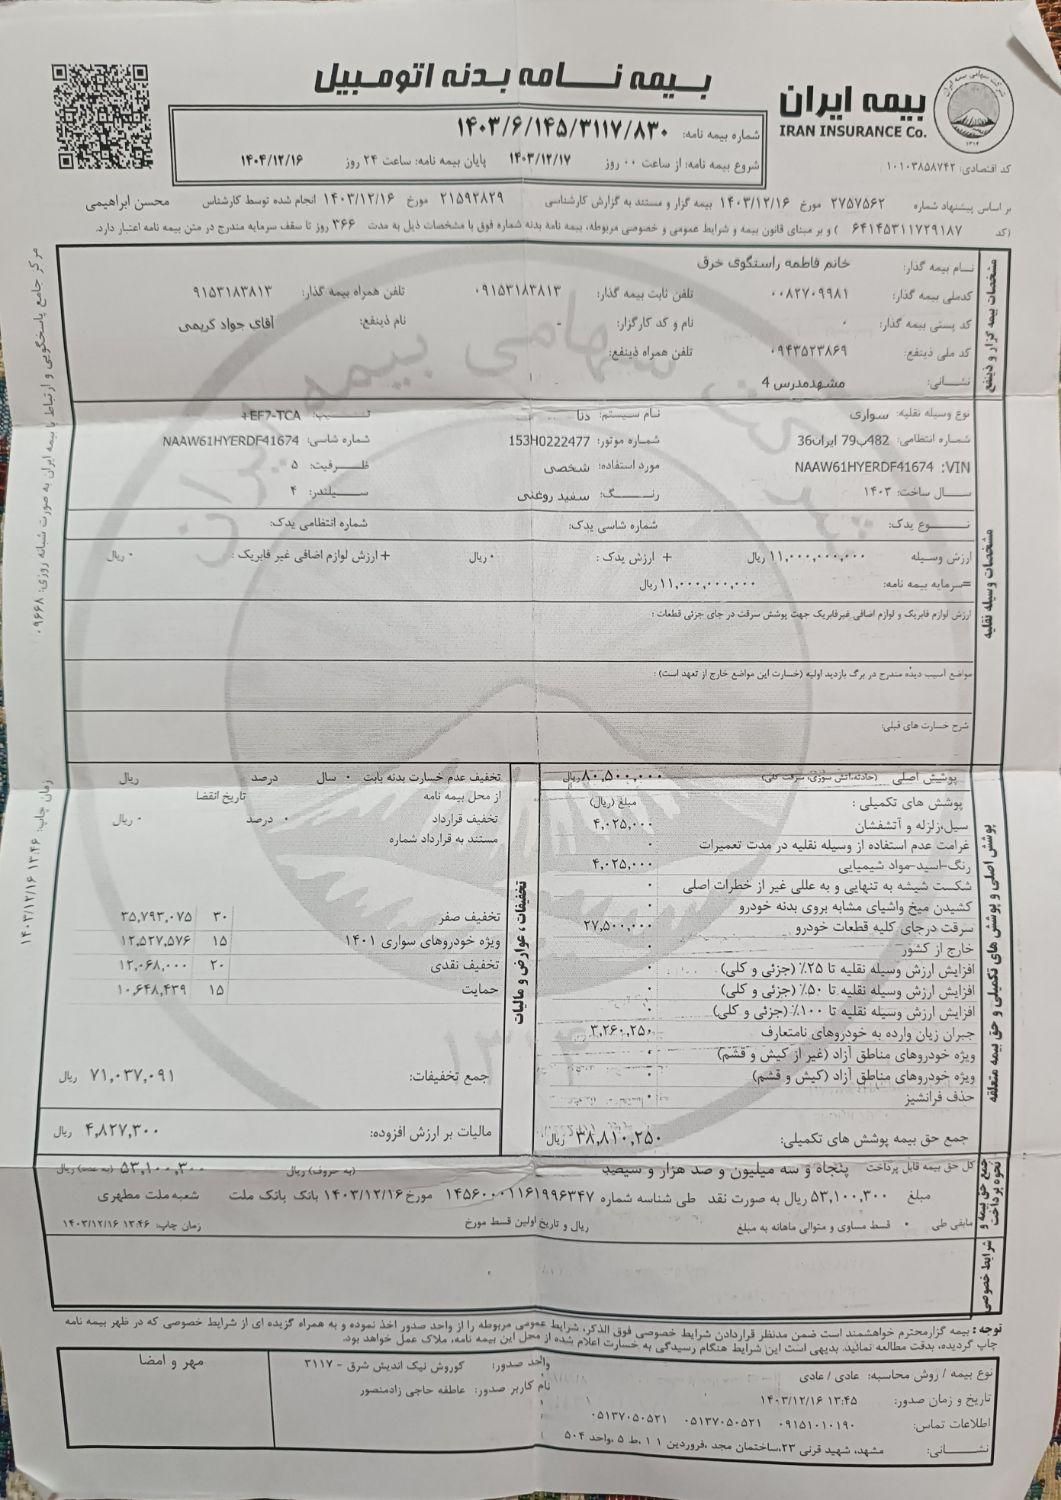 بیمه نامه بدنه اتومبیل
بیمه ایران
IRAN INSURANCE Co.
کد اقتصادی: ۱۰۱۰۳۸۵۸۷۴۲
شماره بیمه نامه: ۱۴۰۳/۶/۱۴۵/۳۱۱۷/۸۳۰
شروع بیمه نامه: از ساعت ۰۰ روز ۱۴۰۳/۱۲/۱۷ پایان بیمه نامه: ساعت ۲۴ روز ۱۴۰۴/۱۲/۱۶
بر اساس پیشنهاد شماره ۲۷۵۷۵۶۲ مورخ ۱۴۰۳/۱۲/۱۶ بیمه گزار و مستند به گزارش کارشناسی ۲۱۵۹۲۸۲۹ مورخ ۱۴۰۳/۱۲/۱۶ انجام شده توسط کارشناس محسن ابراهیمی
(کد ۶۴۱۴۵۳۱۱۷۲۹۱۸۷ ) و بر مبنای قانون بیمه و شرایط عمومی و خصوصی مربوطه، بیمه نامه بدنه شماره فوق با مشخصات ذیل به مدت ۳۶۶ روز تا سقف سرمایه مندرج در متن بیمه نامه اعتبار دارد.
مشخصات بیمه گزار و ذینفع
نام بیمه گذار: خانم فاطمه راستگوی خرق
کدملی بیمه گذار: ۰۰۸۲۷۰۹۹۸۱ تلفن ثابت بیمه گذار: ۰۹۱۵۳۱۸۳۸۱۳ تلفن همراه بیمه گذار: ۹۱۵۳۱۸۳۸۱۳
کد پستی بیمه گذار: ۰ نام و کد کارگزار: - نام ذینفع: آقای جواد کریمی
کد ملی ذینفع: ۰۹۴۳۵۲۳۸۶۹ تلفن همراه ذینفع:
نشانی: مشهدمدرس 4
مشخصات وسیله نقلیه
نوع وسیله نقلیه: سواری نام سیستم: دنا تیپ: EF7-TCA+
شماره انتظامی: 482ب79 ایران36 شماره موتور: 153H0222477 شماره شاسی: NAAW61HYERDF41674
VIN: NAAW61HYERDF41674 مورد استفاده: شخصی ظرفیت: ۵
سال ساخت: ۱۴۰۳ رنگ: سفید روغنی سیلندر: ۴
نوع یدک: شماره شاسی یدک: شماره انتظامی یدک:
ارزش وسیله ۱۱,۰۰۰,۰۰۰,۰۰۰ ریال + ارزش یدک : ۰ ریال + ارزش لوازم اضافی غیر فابریک : ۰ ریال
=سرمایه بیمه نامه: ۱۱,۰۰۰,۰۰۰,۰۰۰ ریال
ارزش لوازم فابریک و لوازم اضافی غیرفابریک جهت پوشش سرقت در جای جزئی قطعات :
مواضع آسیب دیده مندرج در برگ بازدید اولیه (خسارت این مواضع خارج از تعهد است) :
شرح خسارت های قبلی:
پوشش اصلی و پوشش های تکمیلی و حق بیمه متعلقه
پوشش اصلی (حادثه،آتش سوزی، سرقت کلی) ۸۰,۵۰۰,۰۰۰ ریال
پوشش های تکمیلی : مبلغ (ریال)
سیل،زلزله و آتشفشان ۴,۰۲۵,۰۰۰
غرامت عدم استفاده از وسیله نقلیه در مدت تعمیرات ۰
رنگ-اسید-مواد شیمیایی ۴,۰۲۵,۰۰۰
شکست شیشه به تنهایی و به عللی غیر از خطرات اصلی ۰
کشیدن میخ واشیای مشابه بروی بدنه خودرو ۰
سرقت درجای کلیه قطعات خودرو ۲۷,۵۰۰,۰۰۰
خارج از کشور ۰
افزایش ارزش وسیله نقلیه تا ۲۵٪ (جزئی و کلی) ۰
افزایش ارزش وسیله نقلیه تا ۵۰٪ (جزئی و کلی) ۰
افزایش ارزش وسیله نقلیه تا ۱۰۰٪ (جزئی و کلی) ۰
جبران زیان وارده به خودروهای نامتعارف ۳,۲۶۰,۲۵۰
ویژه خودروهای مناطق آزاد (غیر از کیش و قشم) ۰
ویژه خودروهای مناطق آزاد (کیش و قشم) ۰
حذف فرانشیز ۰
جمع حق بیمه پوشش های تکمیلی: ۳۸,۸۱۰,۲۵۰ ریال
تخفیفات ، عوارض و مالیات
تخفیف عدم خسارت بدنه بابت ۰ سال درصد ریال
از محل بیمه نامه تاریخ انقضا
تخفیف قرارداد ۰ درصد ۰ ریال
مستند به قرارداد شماره
تخفیف صفر ۳۰ ۳۵,۷۹۳,۰۷۵
ویژه خودروهای سواری ۱۴۰۱ ۱۵ ۱۲,۵۲۷,۵۷۶
تخفیف نقدی ۲۰ ۱۲,۰۶۸,۰۰۰
حمایت ۱۵ ۱۰,۶۴۸,۴۳۹
جمع تخفیفات: ۷۱,۰۳۷,۰۹۱ ریال
مالیات بر ارزش افزوده: ۴,۸۲۷,۳۰۰ ریال
جمع حق بیمه و نحوه پرداخت
کل حق بیمه قابل پرداخت پنجاه و سه میلیون و صد هزار و سیصد (به حروف) ریال ۵۳,۱۰۰,۳۰۰ (به عدد) ریال
مبلغ ۵۳,۱۰۰,۳۰۰ ریال به صورت نقد طی شناسه شماره ۱۴۵۶۰۰۰۱۱۶۱۹۹۶۳۴۷ مورخ ۱۴۰۳/۱۲/۱۶ بانک بانک ملت شعبه ملت مطهری
مابقی طی ۰ قسط مساوی و متوالی ماهانه به مبلغ ریال و تاریخ اولین قسط مورخ زمان چاپ: ۱۳:۴۶ ۱۴۰۳/۱۲/۱۶
شرایط خصوصی
توجه : بیمه گزارمحترم خواهشمند است ضمن مدنظر قراردادن شرایط خصوصی فوق الذکر، شرایط عمومی مربوطه را از واحد صدور اخذ نموده و به همراه گزیده ای از شرایط خصوصی که در ظهر بیمه نامه
چاپ گردیده، بدقت مطالعه نمائید. بدیهی است این شرایط هنگام رسیدگی به خسارت اعلام شده از محل این بیمه نامه، ملاک عمل خواهد بود.
نوع بیمه / روش محاسبه: عادی / عادی واحد صدور: کوروش نیک اندیش شرق - ۳۱۱۷ مهر و امضا
تاریخ و زمان صدور: ۱۳:۴۵ ۱۴۰۳/۱۲/۱۶ نام کاربر صدور: عاطفه حاجی زادمنصور
اطلاعات تماس: ۰۹۱۵۱۰۱۰۱۹۰ ۰۵۱۳۷۰۵۰۵۲۱ ۰۵۱۳۷۰۵۰۵۲۱
نشانی: مشهد، شهید قرنی ۲۳،ساختمان مجد ،فروردین ۱۱ ،ط ۵ ،واحد ۵۰۴
مرکز جامع پاسخگویی و ارتباط با بیمه ایران به صورت شبانه روزی: ۰۹۶۶۸
زمان چاپ: ۱۳:۴۶ ۱۴۰۳/۱۲/۱۶